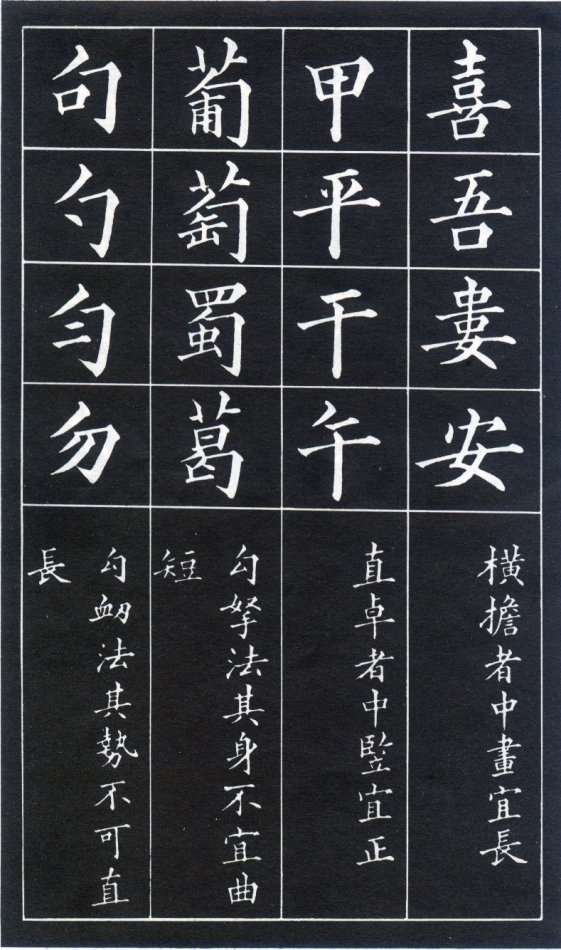 喜吾婁安
橫擔者中畫宜長
甲平干午
直卓者中竪宜正
葡萄蜀葛
勾拏法其身不宜曲
短
句勺勻勿
勾衄法其勢不可直
長